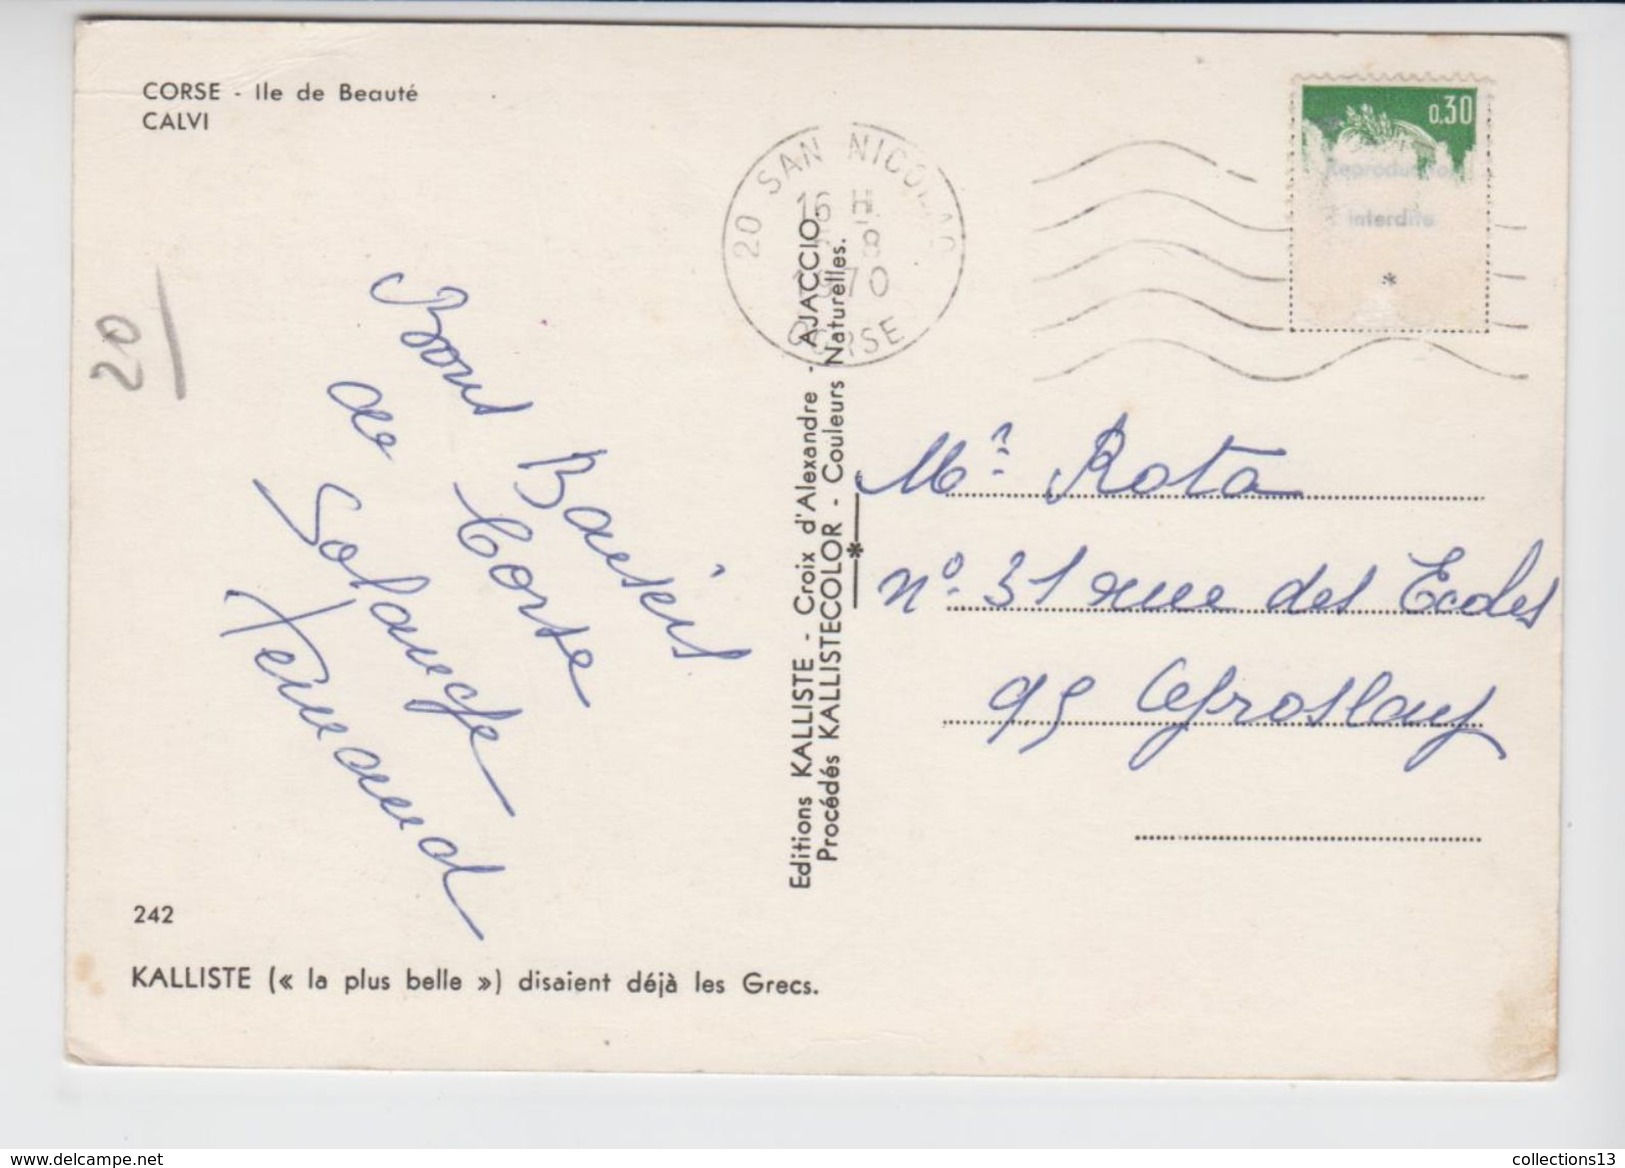 CORSE - Ile de Beauté
CALVI
20 SAN NICOLAO
16 H
8
1970
CORSE
0.30
Reproduction
interdite
*
20
Bons Baisers
de Corse
Solange
Fernand
Editions KALLISTE - Croix d'Alexandre - AJACCIO
Procédés KALLISTECOLOR - Couleurs Naturelles.
Mr Rota
n° 31 rue des Ecoles
95 Groslay
242
KALLISTE (« la plus belle ») disaient déjà les Grecs.
www.delcampe.net
collections13